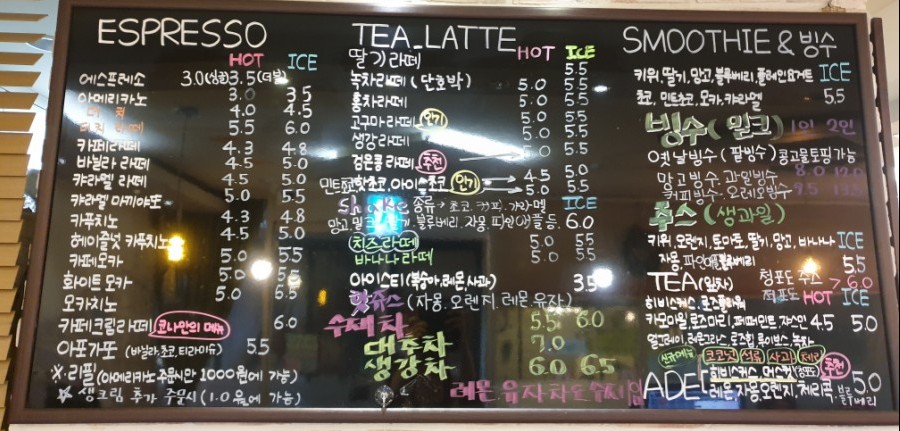 ESPRESSO
HOT ICE
에스프레소 3.0(싱글)3.5(더블)
아메리카노 3.0 3.5
더치 4.0 4.5
더치라떼 5.5 6.0
카페라떼 4.3 4.8
바닐라 라떼 4.5 5.0
캬라멜 라떼 4.5 5.0
캬라멜 마키야또 5.0 5.5
카푸치노 4.3 4.8
헤이즐넛 카푸치노 4.5 5.0
카페모카 5.0 5.5
화이트 모카 5.0 5.5
모카치노 5.0 6.5
카페크림라떼 코나안의 메뉴 6.0
아포가또 (바닐라,초코,티라미슈) 5.5
※.리필 (아메리카노 주문시만 1000원에 가능)
☆ 생크림 추가 주문시 (1.0원에 가능)
TEA_LATTE
HOT ICE
딸기라떼 5.5
녹차라떼 (단호박) 5.0 5.5
홍차라떼 5.0 5.5
고구마라떼 인기 5.0 5.5
생강라떼 5.0 5.5
검은콩라떼 추천 5.0 5.5
민트초코,핫초코,아이스초코 인기 4.5 5.0
5.0 5.5
Shake 종류→초코.커피.캬라멜 ICE
블루베리.자몽.파인애플 등. 6.0
치즈라떼 5.0 5.5
바나나라떼 5.0 5.5
아이스티(복숭아,레몬,사과) 3.5
핫쥬스 (자몽.오렌지.레몬.유자)
수제차 5.5 6.0
대추차 7.0
생강차 6.0 6.5
레몬.유자차도수제
SMOOTHIE & 빙수
키위,딸기,망고,블루베리,플레인요거트 ICE
초코, 민트초코,모카,캬라멜 5.5
빙수(밀크) 1인 2인
옛날빙수 (팥빙수) 콩고물토핑가능
망고빙수.과일빙수 8.0
커피빙수.오레오빙수 9.5
쥬스 (생과일)
키위,오렌지,토마토,딸기,망고,바나나 ICE
자몽.파인애플블루베리 5.5
TEA(잎차) 청포도 쥬스 > 6.0
적포도 HOT ICE
히비스커스,로즈플라워
카모마일,로즈마리,페퍼민트,쟈스민 4.5 5.0
얼그레이,레몬그라스,로즈힙,루이보스,녹차
신규메뉴 코코넛 석류 사과 체리
ADE 히비스커스,머스켓(청포도) 추천
레몬,자몽,오렌지,체리콕.블루베리 5.0